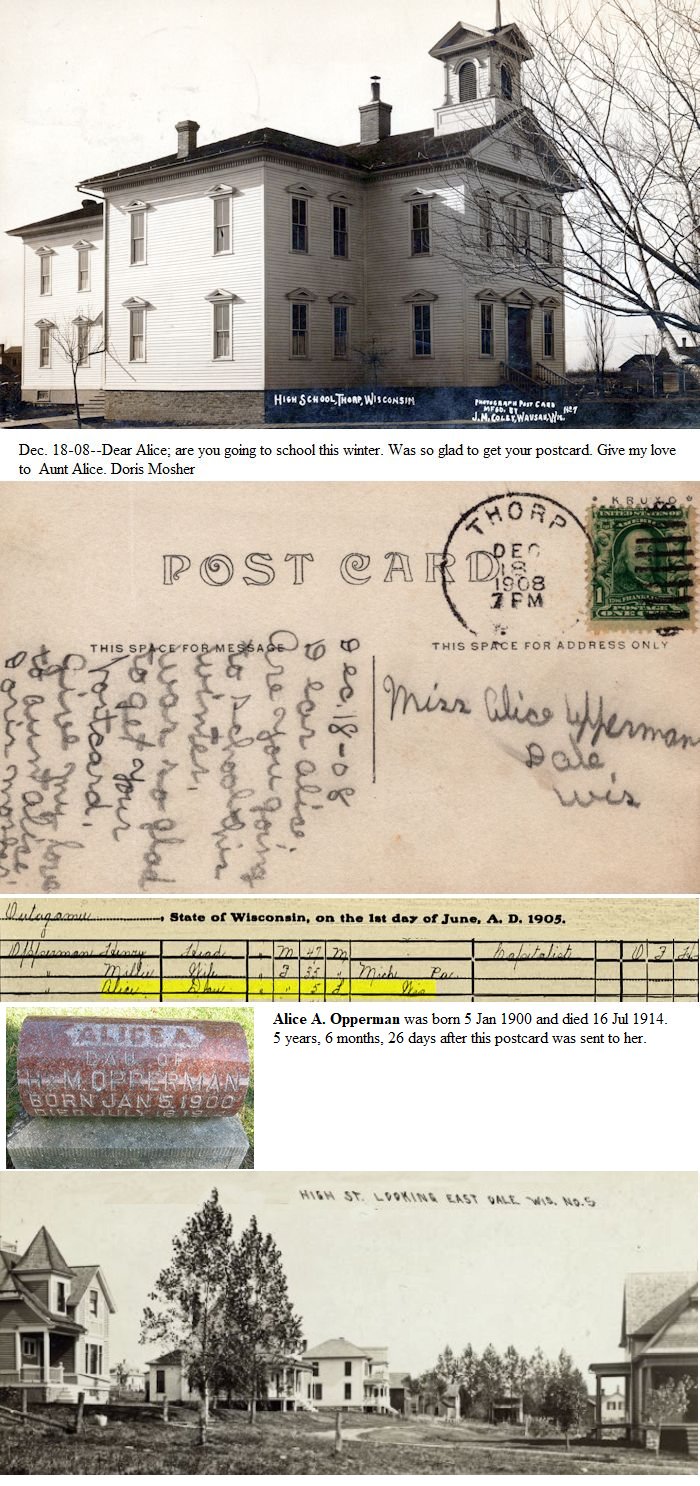 HIGH SCHOOL, THORP, WISCONSIN
PHOTOGRAPH POST CARD
MFGD. BY
J.M. COLBY, WAUSAU, WIS.
No 7
Dec. 18-08--Dear Alice; are you going to school this winter. Was so glad to get your postcard. Give my love
to Aunt Alice. Doris Mosher
POST CARD
THORP
DEC
18
1908
7 PM
KRUXO
UNITED STATES OF
AMERICA
1 FRANKLIN 1
POSTAGE
ONE CENT
THIS SPACE FOR MESSAGE
THIS SPACE FOR ADDRESS ONLY
Dec. 18-08
Dear Alice;
Are you going
to school this
winter.
Was so glad
to get your
Postcard.
Give my love
to aunt Alice
Doris Mosher
Miss Alice Opperman
Dale
Wis
Outagamie, State of Wisconsin, on the 1st day of June, A. D. 1905.
Opperman Henry Head " M 47 M Kapitalist O F
" Millie Wife " F 35 " Mich Pa
" Alice Dau " " 5 S Wis
Alice A. Opperman was born 5 Jan 1900 and died 16 Jul 1914.
5 years, 6 months, 26 days after this postcard was sent to her.
ALICE A.
DAU. OF
H. & M. OPPERMAN
BORN JAN 5, 1900
DIED JULY 16, 19
HIGH ST. LOOKING EAST DALE WIS. NO. 5